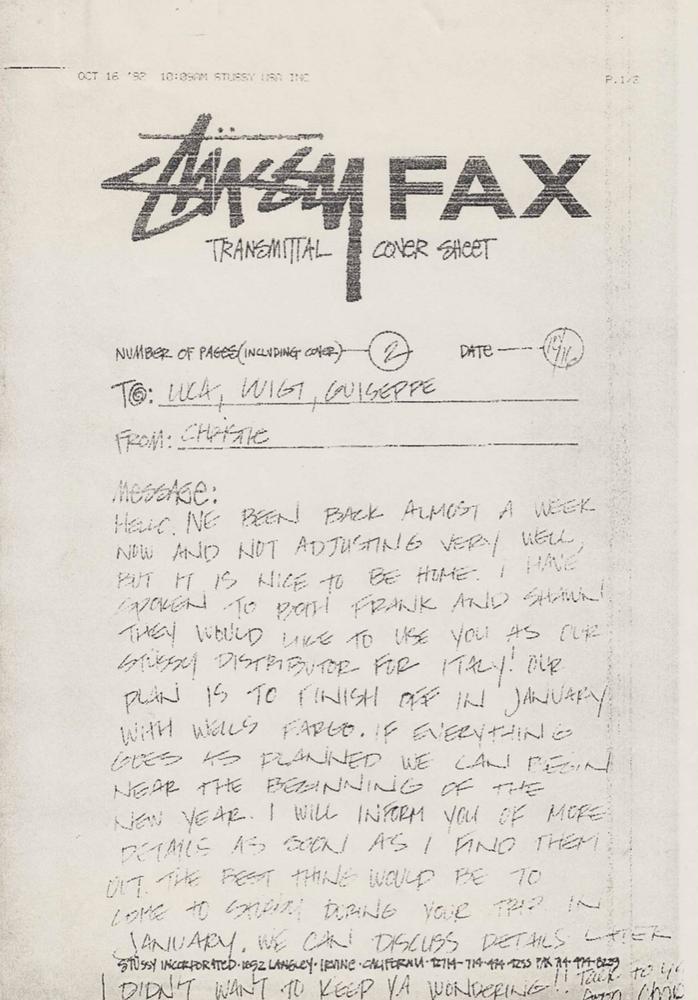 OCT 16 '92 10:09AM STUSSY USA INC P.1/2
Stüssy FAX
TRANSMITTAL COVER SHEET
NUMBER OF PAGES (INCLUDING COVER) 2 DATE 10/16
TO: LUCA, LUIGI, GUISEPPE
FROM: CHRISTIE
MESSAGE:
HELLO. I'VE BEEN BACK ALMOST A WEEK
NOW AND NOT ADJUSTING VERY WELL,
BUT IT IS NICE TO BE HOME. I HAVE
SPOKEN TO BOTH FRANK AND SHAWN.
THEY WOULD LIKE TO USE YOU AS OUR
STÜSSY DISTRIBUTOR FOR ITALY! OUR
PLAN IS TO FINISH OFF IN JANUARY
WITH WELLS FARGO. IF EVERYTHING
GOES AS PLANNED WE CAN BEGIN
NEAR THE BEGINNING OF THE
NEW YEAR. I WILL INFORM YOU OF MORE
DETAILS AS SOON AS I FIND THEM
OUT. THE BEST THING WOULD BE TO
COME TO STÜSSY DURING YOUR TRIP IN
JANUARY. WE CAN DISCUSS DETAILS LATER
STÜSSY INCORPORATED · LANGLEY · IRVINE · CALIFORNIA · 714-474-9253 FAX 714-474-8229
I DIDN'T WANT TO KEEP YA WONDERING!! TALK TO YA
SOON CIAO